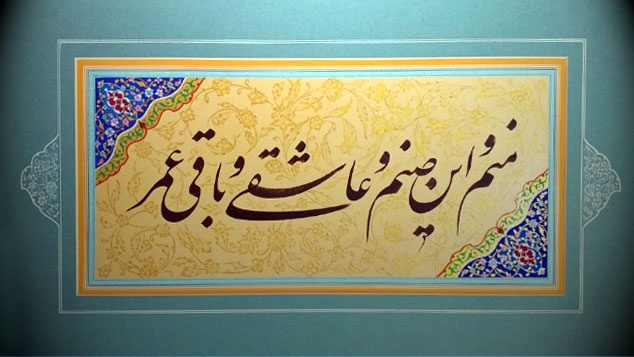 منم و این صنم و عاشقی و باقی عمر